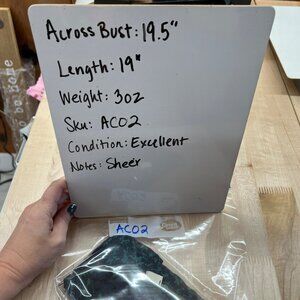 Across Bust: 19.5"
Length: 19"
Weight: 3oz
Sku: AC02
Condition: Excellent
Notes: Sheer
AC02